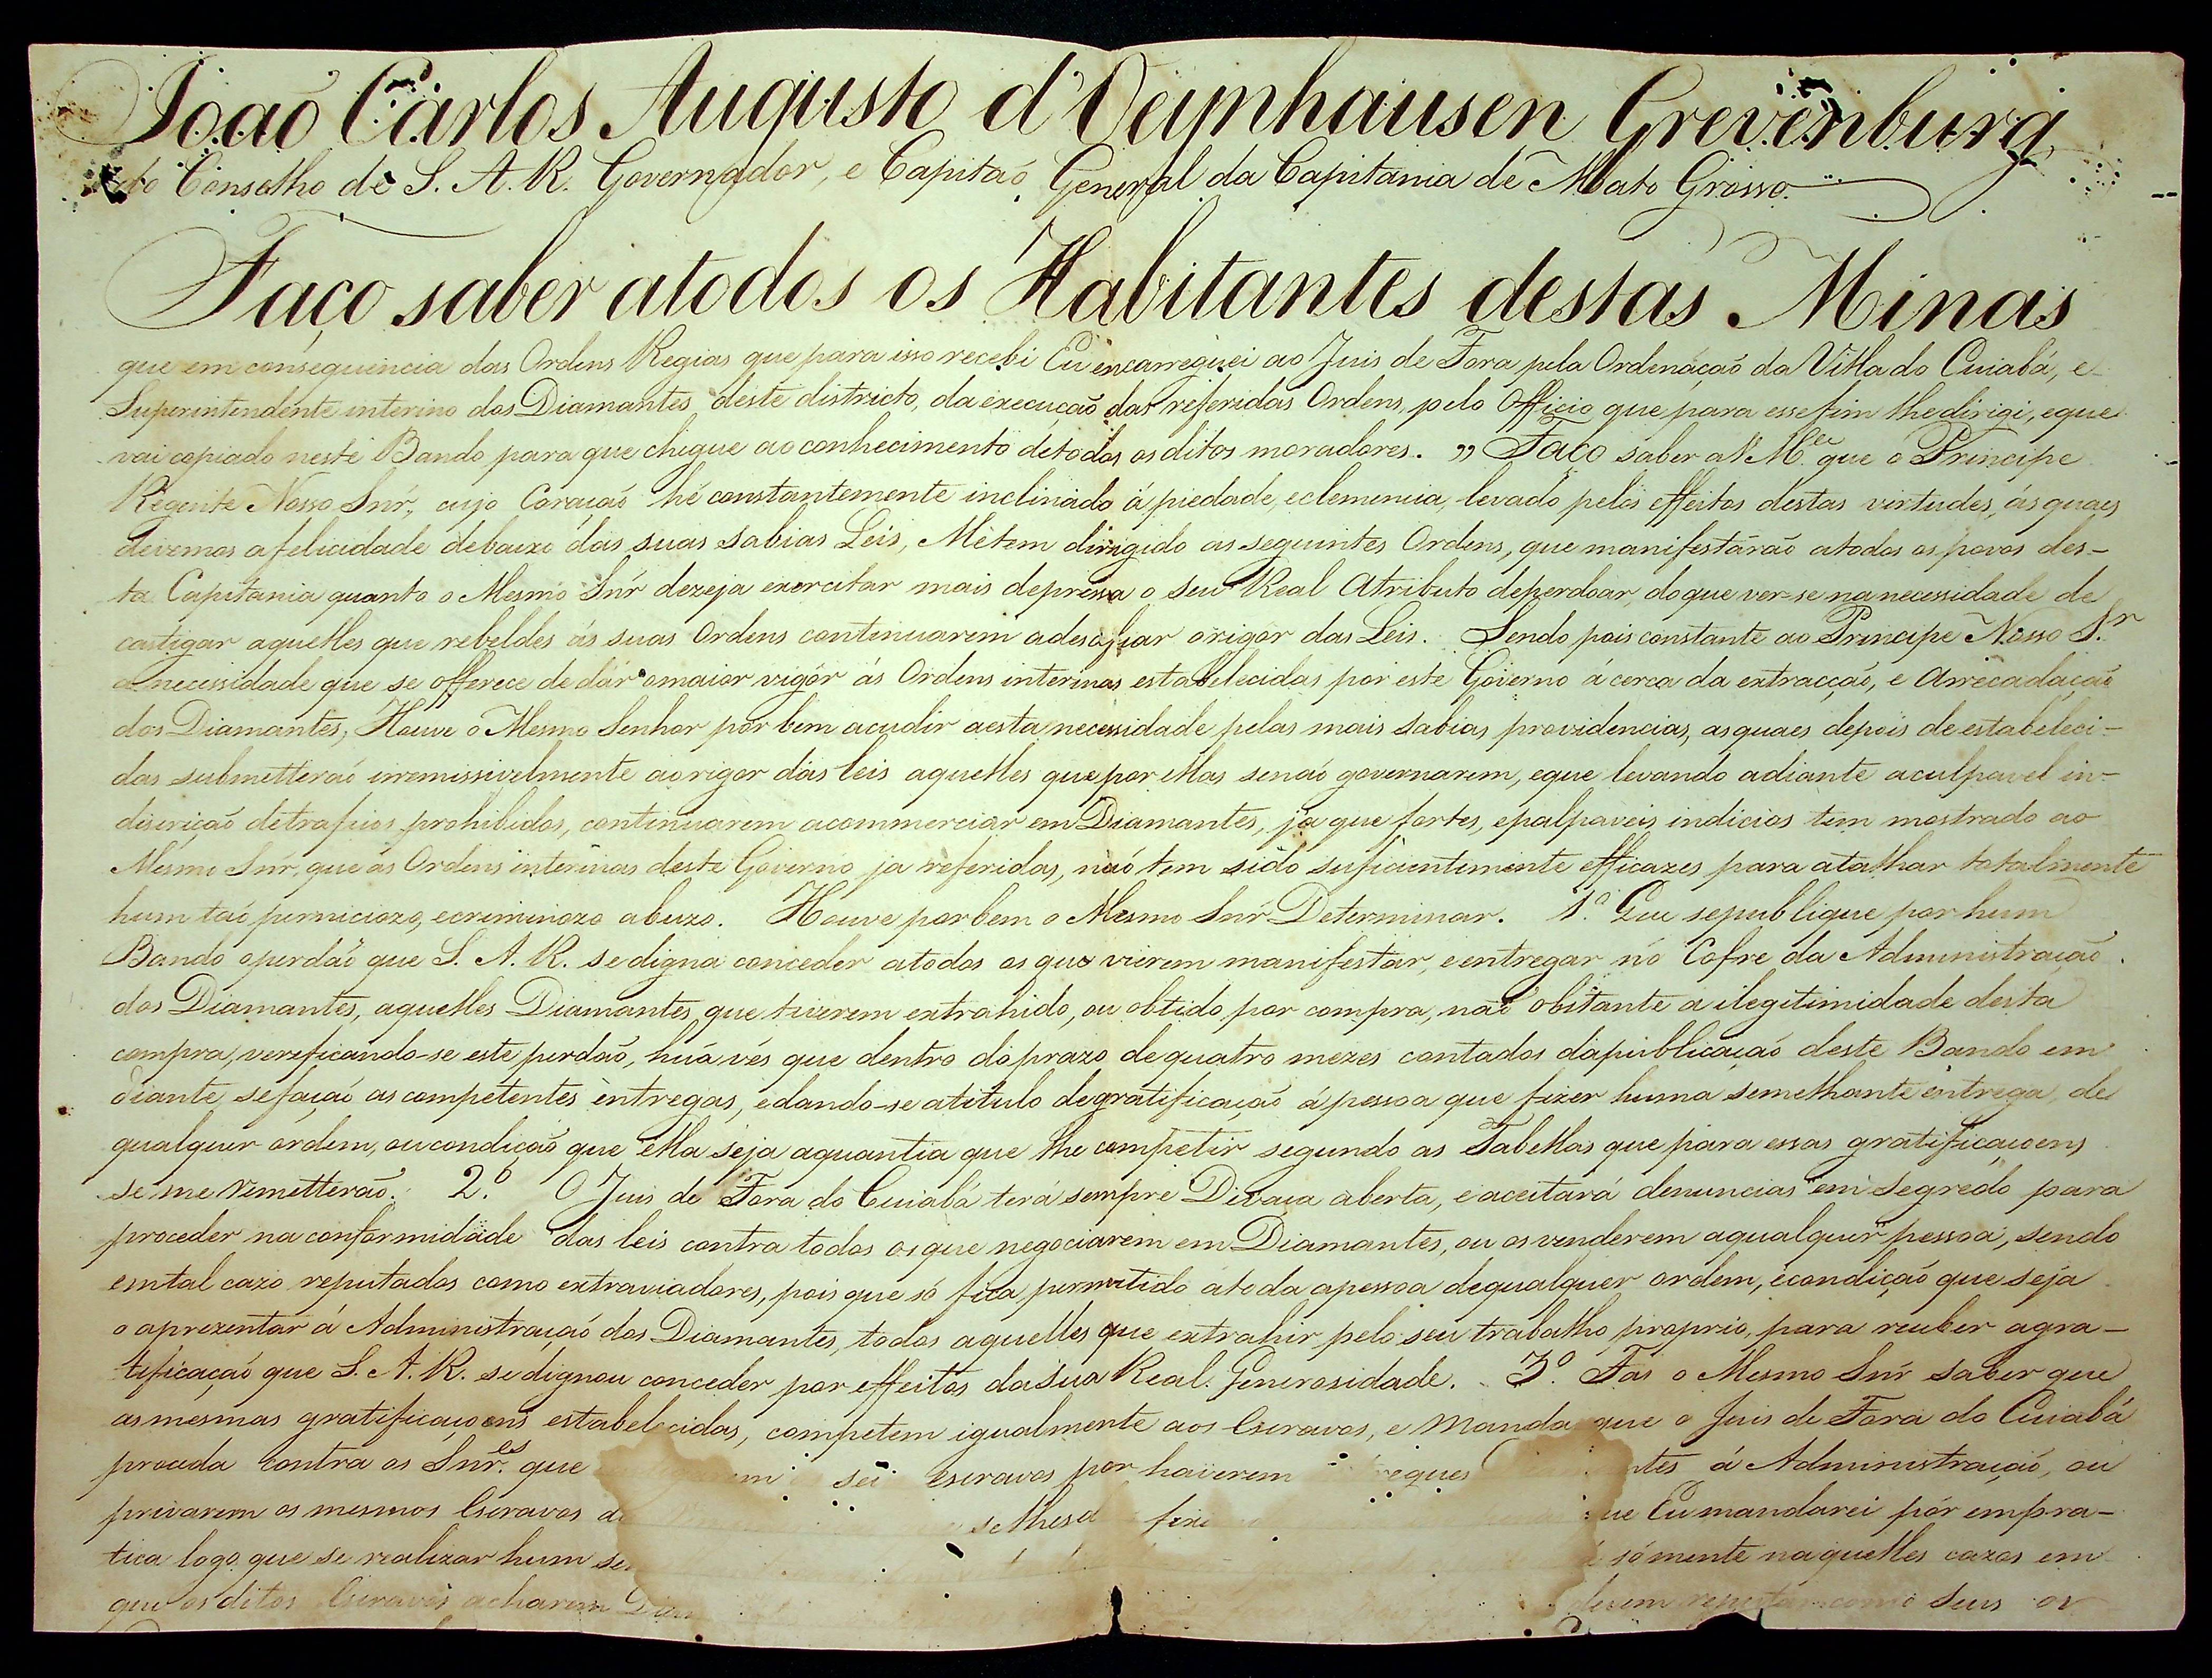 João Carlos Augusto d'Oeynhausen Grevenburg,
do Conselho de S. A. R. Governador, e Capitão General da Capitania de Mato Grosso.
Faço saber atodos os Habitantes destas Minas
que em consequencia das Ordens Regias que para isso recebi Eu encarreguei ao Juis de Fora pela Ordenação da Villa do Cuiabá, e
Superintendente interino dos Diamantes deste districto, da execução das referidas Ordens, pelo Officio que para esse fim lhe dirigi, eque
vai copiado neste Bando para que chegue ao conhecimento detodos os ditos moradores. „ Faço saber a V M.ce que o Principe
Regente Nosso Snr., cujo Coração hé constantemente inclinado á piedade, eclemencia, levado pelos effeitos destas virtudes, ás quaes
devemos a felicidade debaixo das suas sabias Leis, Métem dirigido as seguintes Ordens, que manifestarão atodos os povos des-
ta Capitania quanto o Mesmo Snr dezeja exercitar mais depressa o seu Real Atributo deperdoar, doque ver-se na necessidade de
castigar aquelles que rebeldes ás suas Ordens continuarem adesafiar origor das Leis. Sendo pois constante ao Principe Nosso S.r
a necessidade que se offerece de dár omaior vigôr ás Ordens interinas estabelecidas por este Governo á cerca da extracção, e Arrecadação
dos Diamantes, Houve o Mesmo Senhor por bem acudir aesta necessidade pelas mais sabias providencias, as quaes depois de estabeleci-
das submetterão irremissivelmente ao rigor das leis aquelles que por ellas senão governarem, eque levando adiante aculpavel in-
discrição detraficos prohibidos, continuarem acommerciar em Diamantes, ja que fortes, epalpaveis indicios tem mostrado ao
Mesmo Snr, que as Ordens interinas deste Governo ja referidas, não tem sido suficientemente efficazes para atalhar totalmente
hum taõ perniciozo, ecriminozo abuzo. Houve por bem o Mesmo Snr Determinar. 1.º Que sepublique por hum
Bando operdão que S. A. R. sedigna conceder atodos os que vierem manifestar, eentregar nó Cofre da Administração
dos Diamantes, aquelles Diamantes que tiverem extrahido, ou obtido por compra, não obstante a ilegitimidade desta
compra, verificando-se este perdão, huá vés que dentro do prazo dequatro mezes contados dapublicação deste Bando em
diante, sefação as competentes entregas, edando-se atitulo degratificação á pessoa que fizer huma semelhante entrega, de
qualquer ordem, oucondição que ella seja aquantia que lhe competir segundo as Tabellas que para essas gratificaçoens
se me remetterão. 2.º O Juis de Fora do Cuiabá terá sempre Devaça aberta, e aceitará denuncias em segredo para
proceder na conformidade das leis contra todos osque negociarem em Diamantes, ou os venderem aqualquer pessoa, sendo
emtal cazo reputados como extraviadores, pois que só fica permitido atoda apessoa dequalquer ordem, econdição que seja
o aprezentar á Administração dos Diamantes, todos aquelles que extrahir pelo seu trabalho proprio, para receber agra-
tificação que S. A. R. se dignou conceder por effeitos dasua Real Generosidade. 3.º Fas o Mesmo Snr saber que
as mesmas gratificaçoens estabelecidas, competem igualmente aos Escravos, e Manda que o Juis de Fora do Cuiabá
proceda contra os Snr.es que escravos por haverem á Administração, ou
privarem os mesmos Escravos que Eu mandarei pôr empra-
tica logo que se realizar hum sómente naquelles cazos em
que os ditos Escravos acharem seus ou